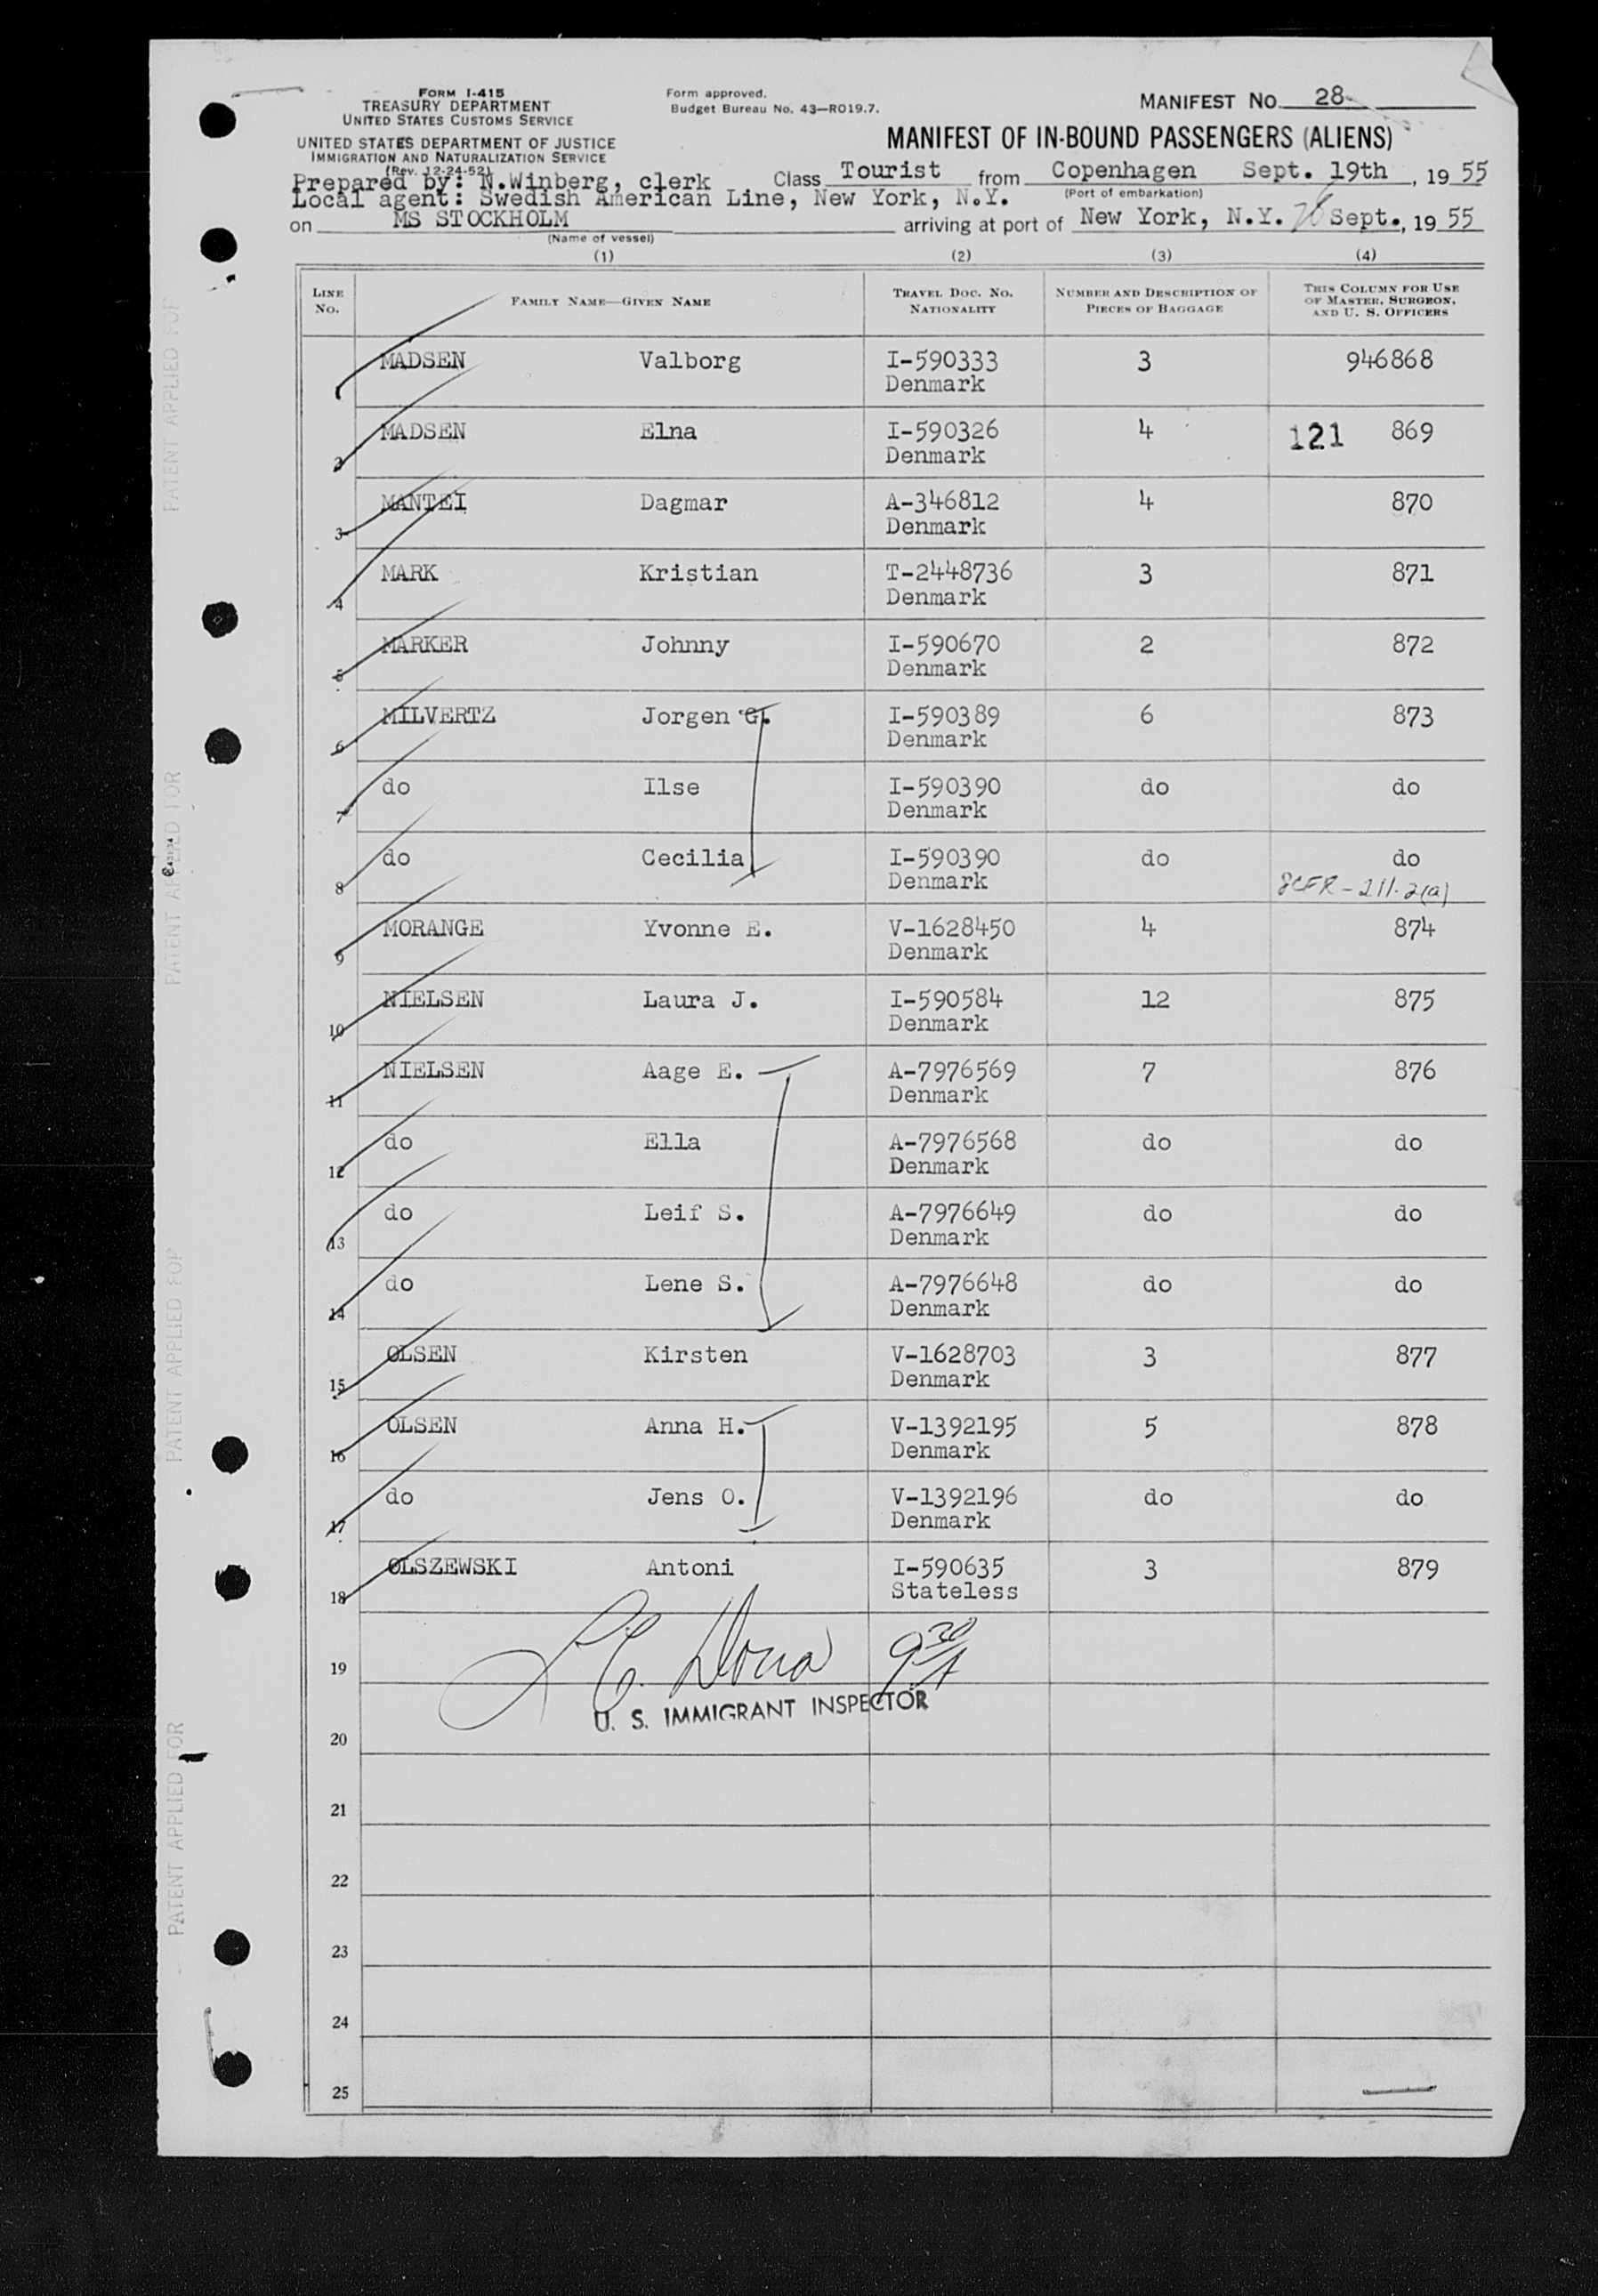 FORM I-415
TREASURY DEPARTMENT
UNITED STATES CUSTOMS SERVICE
UNITED STATES DEPARTMENT OF JUSTICE
IMMIGRATION AND NATURALIZATION SERVICE
(Rev. 12-24-52)
Form approved.
Budget Bureau No. 43—RO19.7.
MANIFEST NO. 28
MANIFEST OF IN-BOUND PASSENGERS (ALIENS)
Prepared by: N.Winberg, clerk
Class Tourist from Copenhagen Sept. 19th, 19 55
(Port of embarkation)
Local agent: Swedish American Line, New York, N.Y.
on MS STOCKHOLM arriving at port of New York, N.Y. Sept., 19 55
(Name of vessel)
(1) (2) (3) (4)
LINE NO. FAMILY NAME—GIVEN NAME TRAVEL DOC. NO. NATIONALITY NUMBER AND DESCRIPTION OF PIECES OF BAGGAGE THIS COLUMN FOR USE OF MASTER, SURGEON, AND U. S. OFFICERS
1 MADSEN Valborg I-590333 3 946868
Denmark
2 MADSEN Elna I-590326 4 121 869
Denmark
3 MANTEI Dagmar A-346812 4 870
Denmark
4 MARK Kristian T-2448736 3 871
Denmark
5 MARKER Johnny I-590670 2 872
Denmark
6 MILVERTZ Jorgen G. I-590389 6 873
Denmark
7 do Ilse I-590390 do do
Denmark
8 do Cecilia I-590390 do do
Denmark 8CFR-211.2(a)
9 MORANGE Yvonne E. V-1628450 4 874
Denmark
10 NIELSEN Laura J. I-590584 12 875
Denmark
11 NIELSEN Aage E. A-7976569 7 876
Denmark
12 do Ella A-7976568 do do
Denmark
13 do Leif S. A-7976649 do do
Denmark
14 do Lene S. A-7976648 do do
Denmark
15 OLSEN Kirsten V-1628703 3 877
Denmark
16 OLSEN Anna H. V-1392195 5 878
Denmark
17 do Jens O. V-1392196 do do
Denmark
18 OLSZEWSKI Antoni I-590635 3 879
Stateless
19 9 30 A
U. S. IMMIGRANT INSPECTOR
20
21
22
23
24
25
PATENT APPLIED FOR
PATENT APPLIED FOR
PATENT APPLIED FOR
PATENT APPLIED FOR